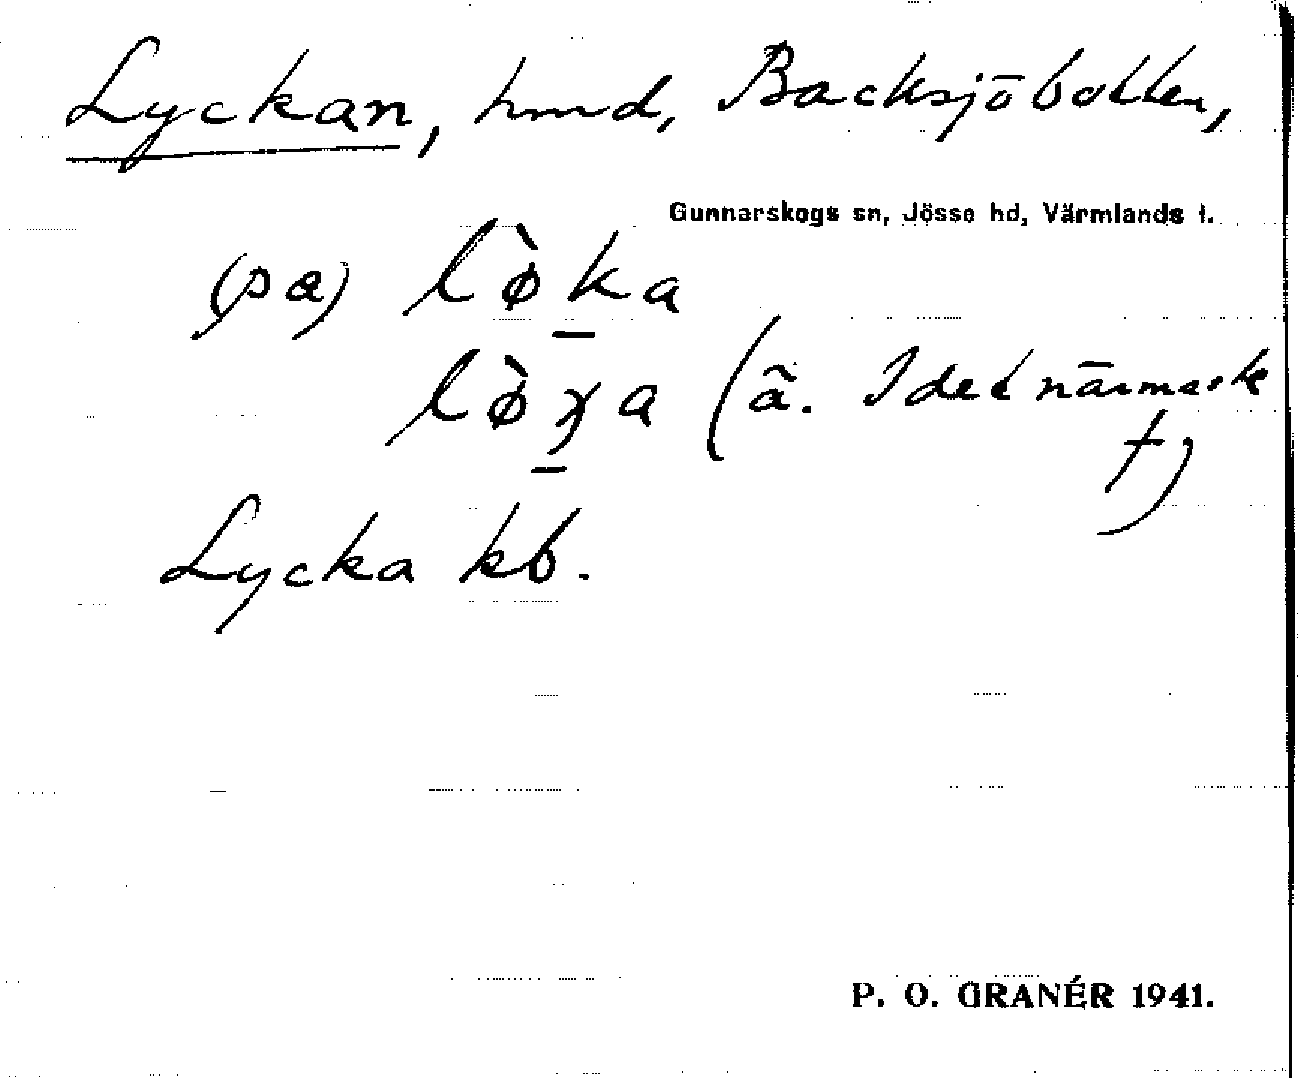 Lyckan, hmd, Backsjöbotten,
Gunnarskogs sn, Jösse hd, Värmlands l.
(pa) lø̀ka
lø̀χa (ä. I det närmaste
†)
Lycka kb.
P. O. GRANÉR 1941.